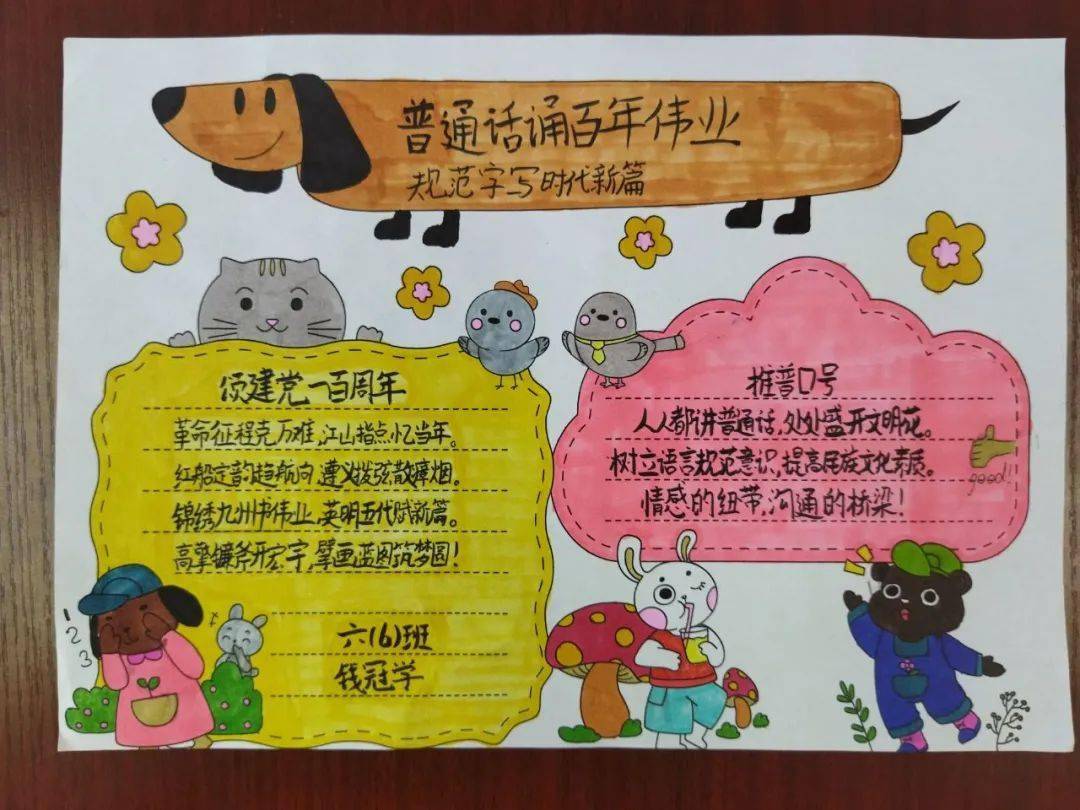 普通话诵百年伟业
规范字写时代新篇
颂建党一百周年
革命征程克万难,江山指点忆当年。
红船定韵趋航向,遵义拨弦散瘴烟。
锦绣九州书伟业,英明五代赋新篇。
高擎镰斧开宏宇,擘画蓝图筑梦圆!
六(6)班
钱冠学
1
2
3
推普口号
人人都讲普通话,处处盛开文明花。
树立语言规范意识,提高民族文化素质。
情感的纽带,沟通的桥梁!
good!